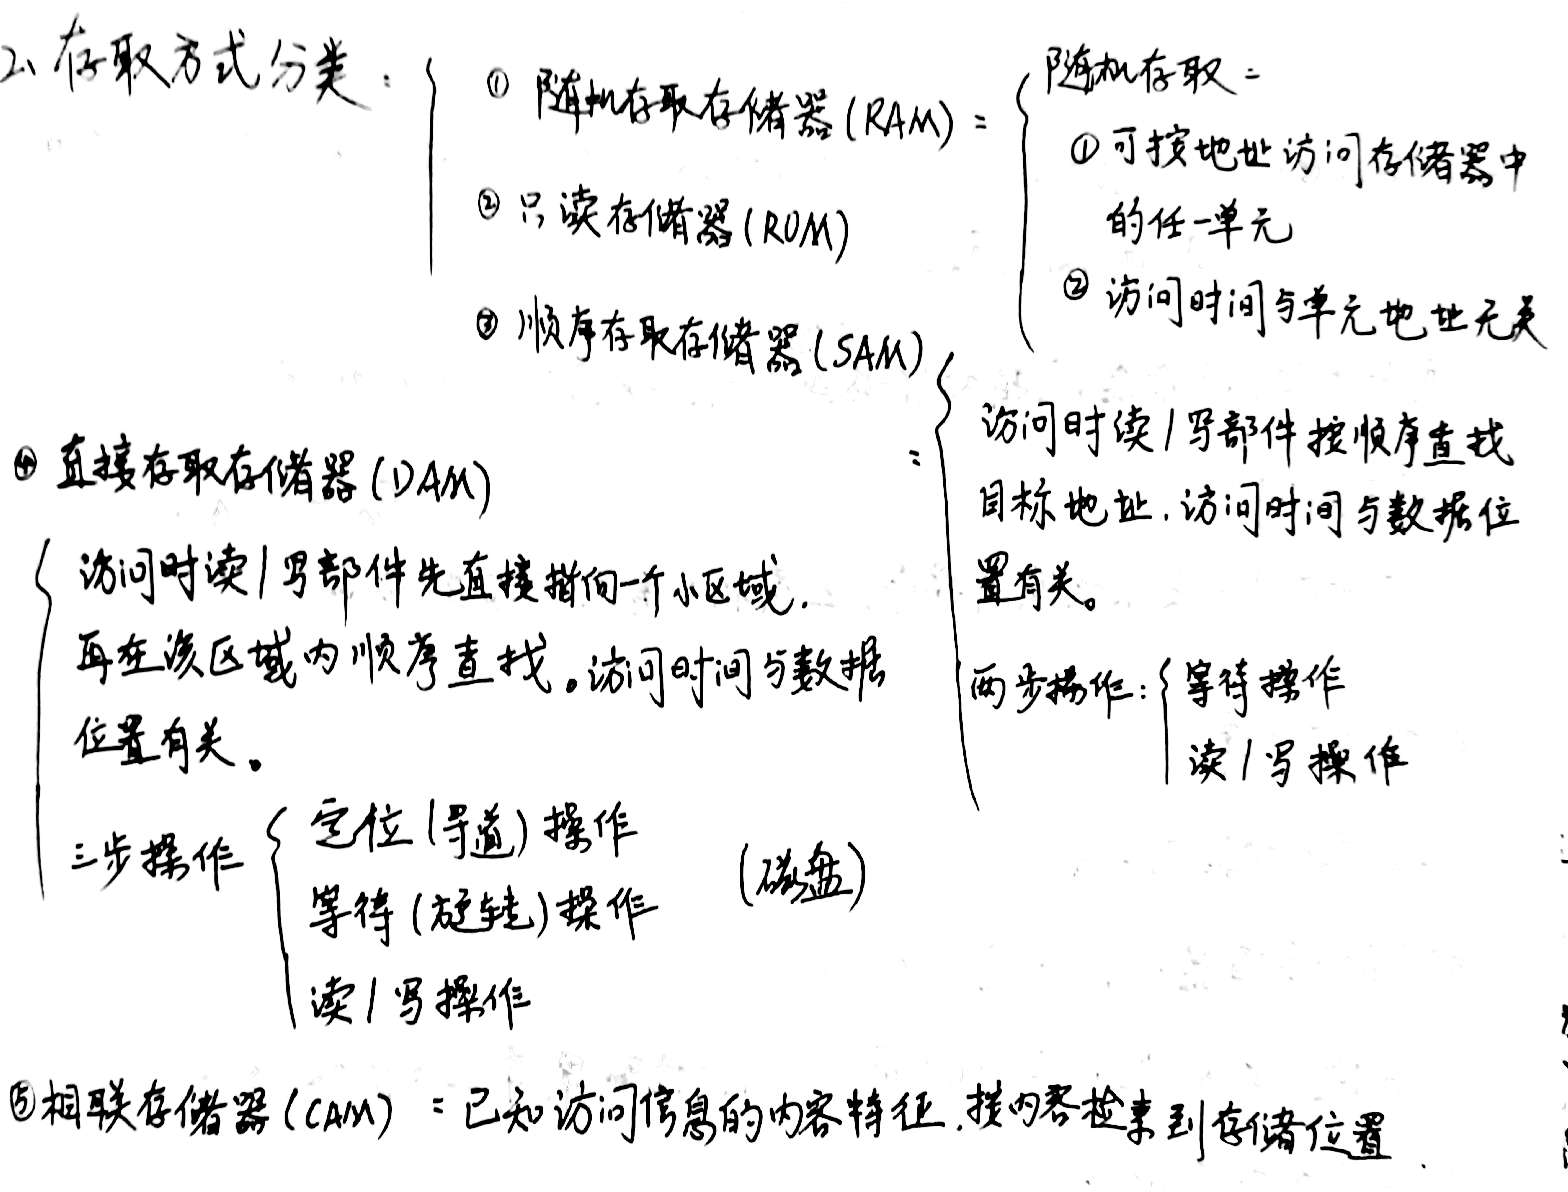 2、存取方式分类：
① 随机存取存储器(RAM)：
随机存取：
① 可按地址访问存储器中
的任一单元
② 访问时间与单元地址无关
② 只读存储器(ROM)
③ 顺序存取存储器(SAM)
：访问时读/写部件按顺序查找
目标地址，访问时间与数据位
置有关。
两步操作：
等待操作
读/写操作
④ 直接存取存储器(DAM)
访问时读/写部件先直接指向一个小区域，
再在该区域内顺序查找。访问时间与数据
位置有关。
三步操作
定位(寻道)操作
等待(旋转)操作
读/写操作
(磁盘)
⑤相联存储器(CAM)：已知访问信息的内容特征，按内容检索到存储位置